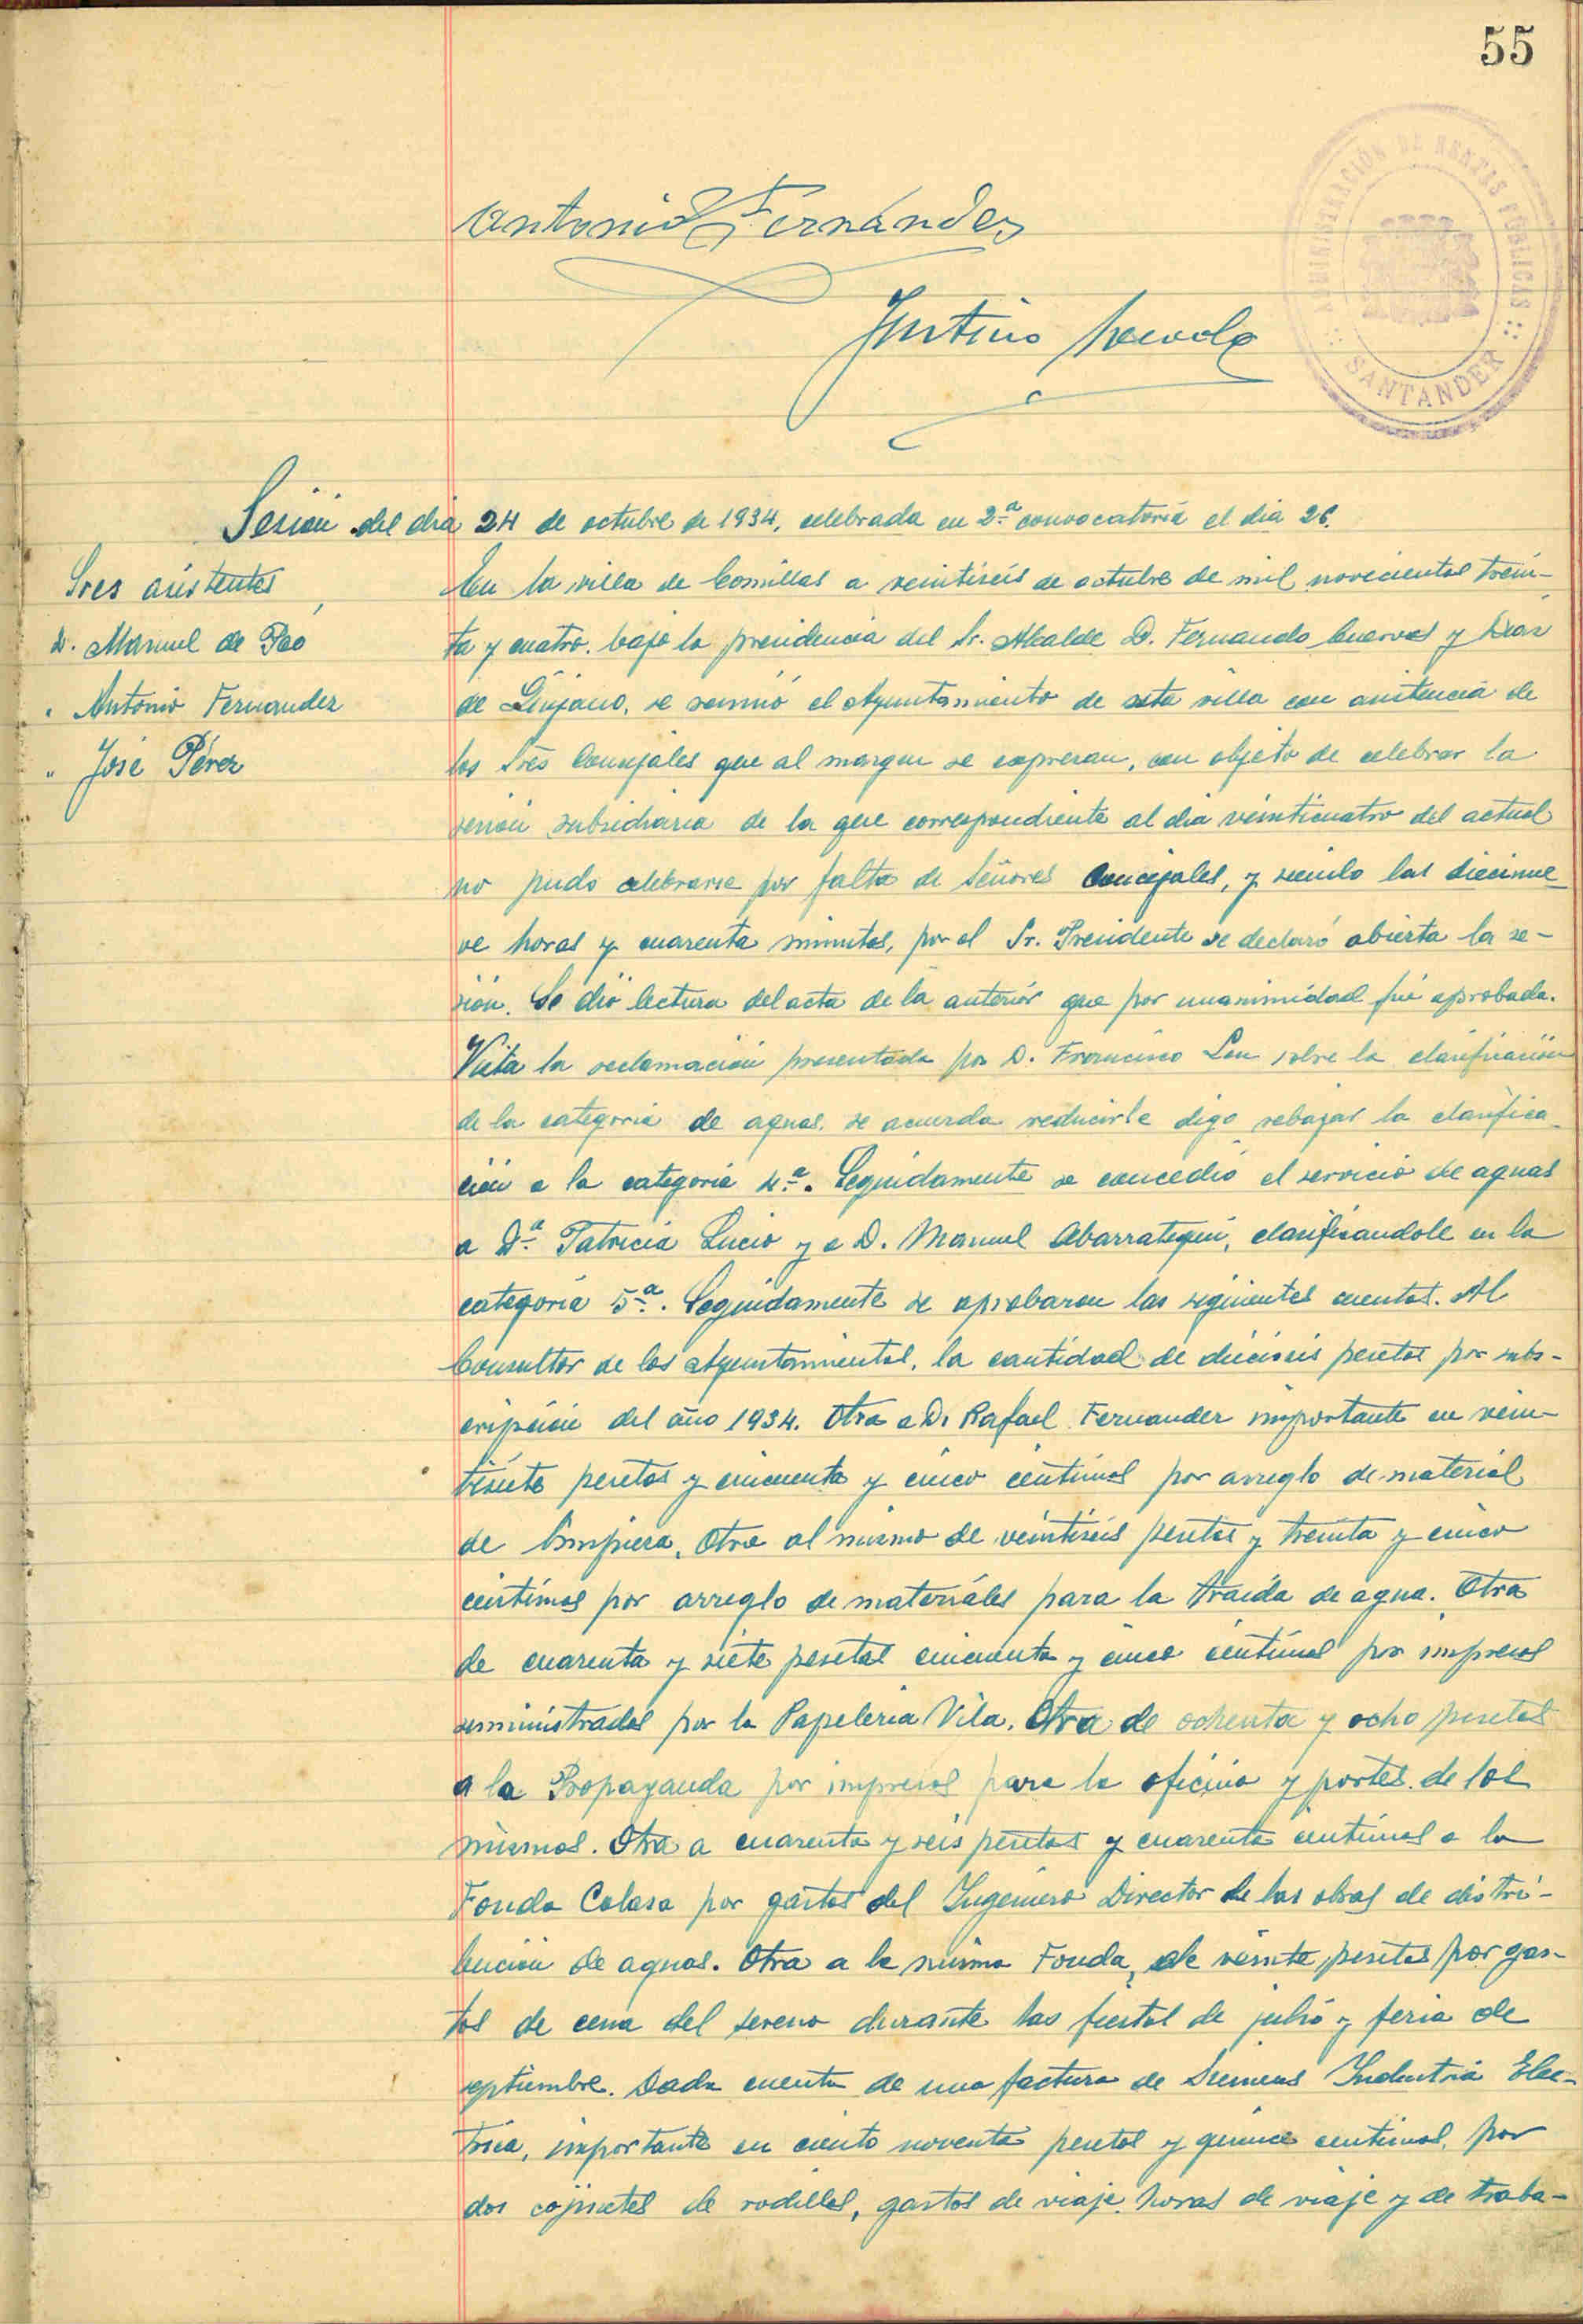 55
ADMINISTRACIÓN DE RENTAS PÚBLICAS
SANTANDER
Antonio Fernández
Justino
Sesión del dia 24 de octubre de 1934, celebrada en 2ª convocatoria el dia 26.
Sres asistentes
D. Manuel de Poo
" Antonio Fernandez
" José Pérez
En la villa de Comillas a veintiseis de octubre de mil novecientos trein-
ta y cuatro, bajo la presidencia del Sr. Alcalde D. Fernando Cuevas y Diaz
de Linjano, se reunió el Ayuntamiento de esta villa con asistencia de
los Sres Concejales que al margen se expresan, con objeto de celebrar la
sesión subsidiaria de la que correspondiente al dia veinticuatro del actual
no pudo celebrarse por falta de Señores Concejales, y siendo las diecinue-
ve horas y cuarenta minutos, por el Sr. Presidente se declaró abierta la se-
sión. Se dió lectura del acta de la anterior que por unanimidad fué aprobada.
Vista la reclamación presentada por D. Francisco Lou sobre la clasificación
de la categoria de aguas, se acuerda reducirle digo rebajar la clasifica-
ción a la categoria 4ª. Seguidamente se concedió el servicio de aguas
a Dª Patricia Lucio y a D. Manuel Abarrategui, clasificandole en la
categoria 5ª. Seguidamente se aprobaron las siguientes cuentas. Al
Consultor de los Ayuntamientos, la cantidad de dieciseis pesetas por subs-
cripción del año 1934. Otra a D. Rafael Fernandez importante en vein-
tisiete pesetas y cincuenta y cinco centimos por arreglo de material
de limpieza. Otra al mismo de veintiseis pesetas y treinta y cinco
centimos por arreglo de materiales para la traida de agua. Otra
de cuarenta y siete pesetas cincuenta y cinco centimos por impresos
suministrados por la Papeleria Vila. Otra de ochenta y ocho pesetas
a la Propaganda por impresos para la oficina y portes de los
mismos. Otra a cuarenta y seis pesetas y cuarenta centimos a la
Fonda Colasa por gastos del Ingeniero Director de las obras de distri-
bución de aguas. Otra a la misma Fonda, de veinte pesetas por gas-
tos de cena del sereno durante las fiestas de julio y feria de
septiembre. Dada cuenta de una factura de Siemens Industria Elec-
trica, importante en ciento noventa pesetas y quince centimos, por
dos cojinetes de rodillos, gastos de viaje, horas de viaje y de traba-